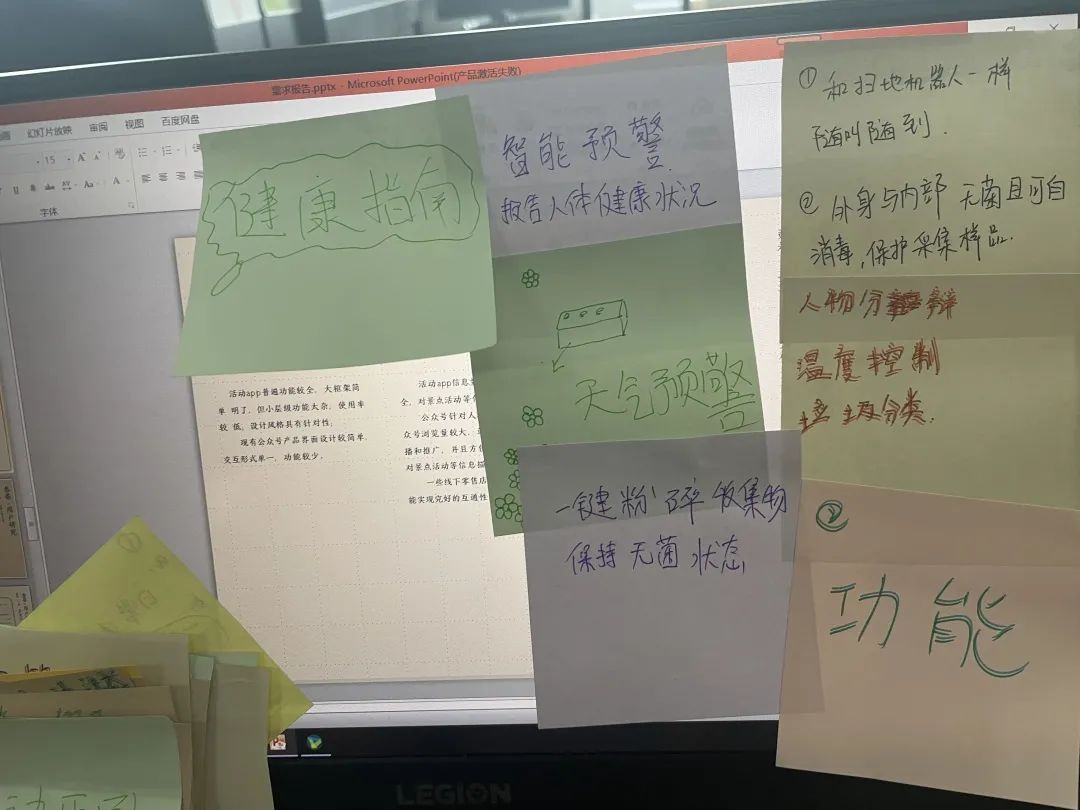 需求报告.pptx - Microsoft PowerPoint(产品激活失败)
幻灯片放映 审阅 视图 百度网盘
15
字体
健康指南
智能预警
报告人体健康状况
天气预警
一键粉碎收集物
保持无菌状态
① 和扫地机器人一样
随叫随到.
② 外身与内部无菌且可自
消毒,保护采集样品.
人物分辩
温度控制
垃圾分类.
②
功能
活动app普遍功能较全,大框架简
单明了,但小层级功能太杂,使用率
较低,设计风格具有针对性;
现有公众号产品界面设计较简单,
交互形式单一,功能较少。
活动app信息
全,对景点活动等
公众号针对人
众号浏览量较大,
播和推广,并且方
对景点活动等信息描
一些线下零售店
能实现完好的互通性
①
LEGION